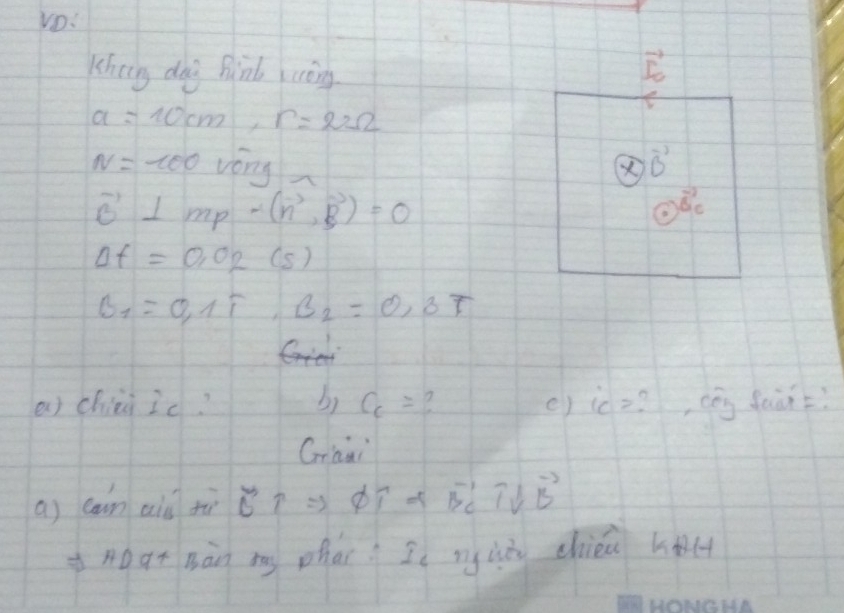 VD:
Khung dây hình vuông
a = 10cm, r = 2Ω
N = 100 vòng
B⃗ ⊥ mp → (n⃗, B⃗) = 0
Δt = 0,02 (s)
B₁ = 0,1T, B₂ = 0,3T
Giải
a) chiều ic? b) ec = ? c) ic = ?, công suất = ?
Giải
a) cảm ứng từ B⃗ ↑ ⇒ Φ↑ B⃗c ↑↓ B⃗
⇒ AD qt bàn tay phải: Ic ngược chiều KĐH
I⃗c
B⃗
B⃗c
HONG HA